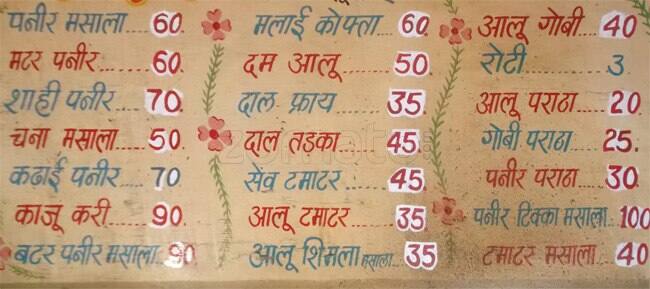 पनीर मसाला 60.
मटर पनीर....... 60.
शाही पनीर.... 70.
चना मसाला 50.
कढाई पनीर..... 70
काजू करी..... 90.
बटर पनीर मसाला.. 90
मलाई कोफ्ता 60.
दम आलू...... 50
दाल फ्राय..... 35
दाल तडका..... 45.
सेव टमाटर..... 45.
आलू टमाटर..... 35
आलू शिमला मसाला... 35
आलू गोबी 40
रोटी......... 3
आलू पराठा... 20
गोबी पराठा... 25.
पनीर पराठा... 30
पनीर टिक्का मसाला.. 100
टमाटर मसाला... 40